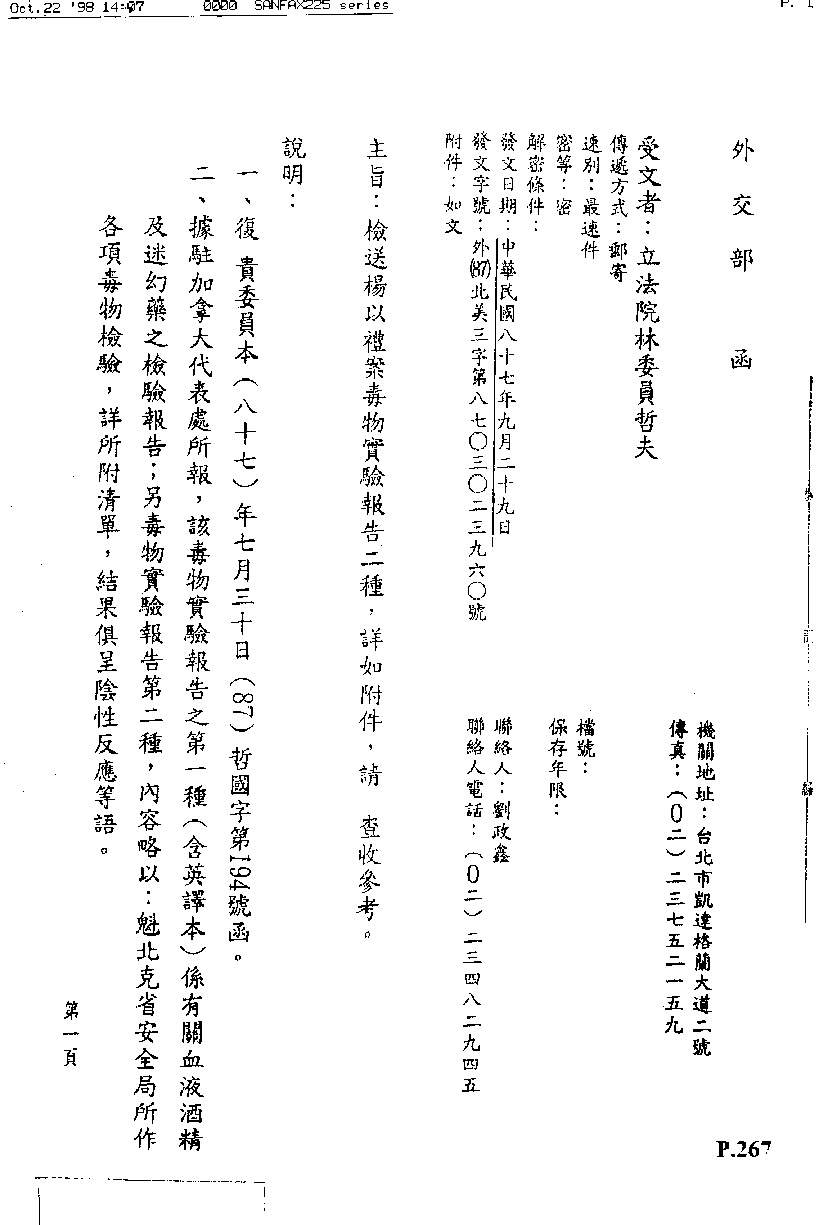 Oct.22 '98 14:07 0000 SANFAX225 series P. 1
外交部 函
機關地址：台北市凱達格蘭大道二號
傳真：（０二）二三七五二一五九
受文者：立法院林委員哲夫
傳遞方式：郵寄
速別：最速件
密等：密
解密條件：
發文日期：中華民國八十七年九月二十九日
發文字號：外(87)北美三字第八七〇三〇二三九六〇號
附件：如文
檔號：
保存年限：
聯絡人：劉政鑫
聯絡人電話：（０二）二三四八二九四五
主旨：檢送楊以禮案毒物實驗報告二種，詳如附件，請 查收參考。
說明：
一、復 貴委員本（八十七）年七月三十日（87）哲國字第194號函。
二、據駐加拿大代表處所報，該毒物實驗報告之第一種（含英譯本）係有關血液酒精
及迷幻藥之檢驗報告；另毒物實驗報告第二種，內容略以：魁北克省安全局所作
各項毒物檢驗，詳所附清單，結果俱呈陰性反應等語。
第一頁
P.267